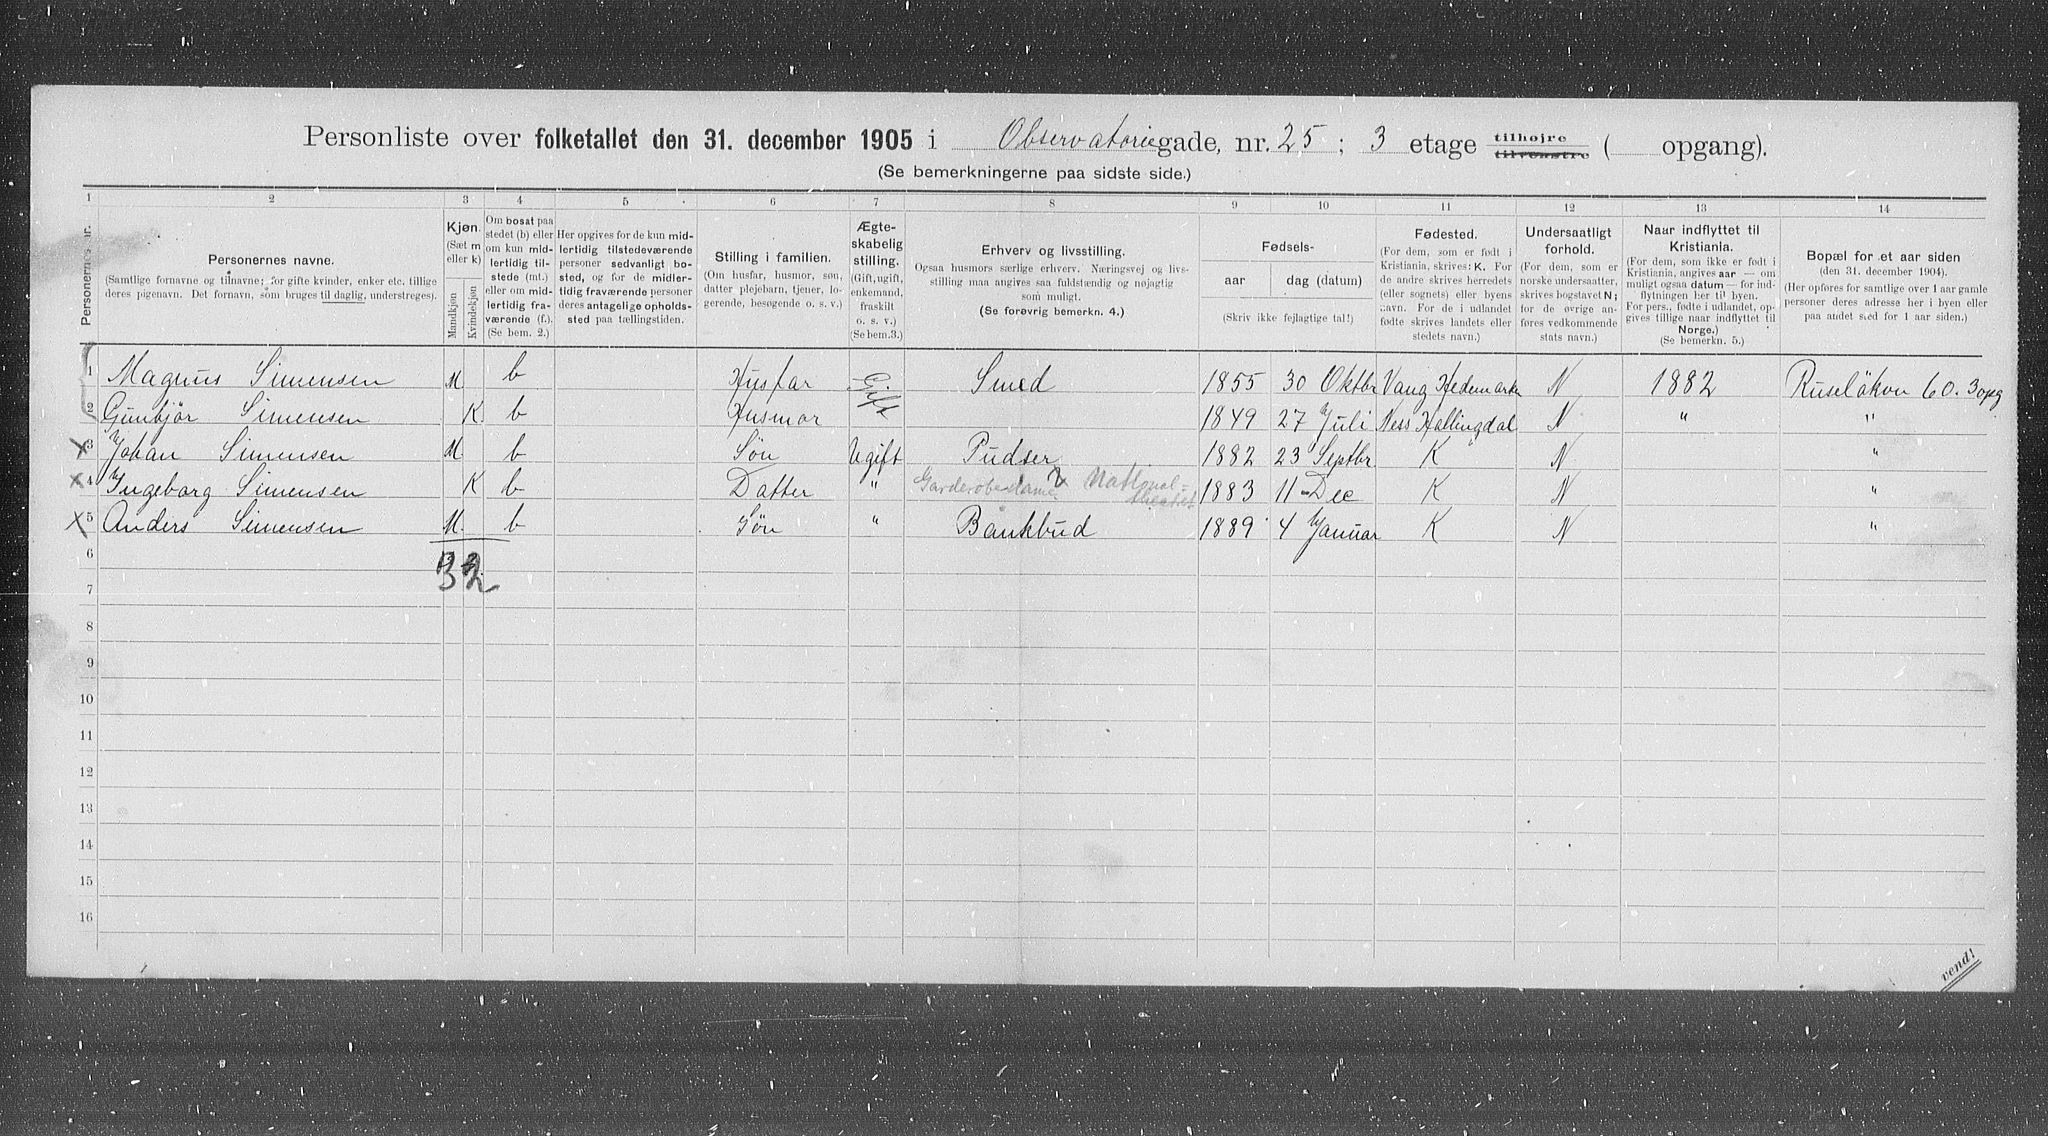 Personliste over folketallet den 31. december 1905 i Observatoriegade, nr. 25; 3 etage tilhøjre tilvenstre ( opgang).
(Se bemerkningerne paa sidste side.)
1 2 3 4 5 6 7 8 9 10 11 12 13 14
Personernes nr.
Personernes navne.
(Samtlige fornavne og tilnavne; for gifte kvinder, enker etc. tillige
deres pigenavn. Det fornavn, som bruges til daglig, understreges).
Kjøn.
(Sæt m
eller k)
Mandkjøn
Kvindekjøn
Om bosat paa
stedet (b) eller
om kun mid-
lertidig til-
stede (mt.)
eller om mid-
lertidig fra-
værende (f.).
(Se bem. 2.)
Her opgives for de kun mid-
lertidig tilstedeværende
personer sedvanlig bo-
sted, og for de midler-
tidig fraværende personer
deres antagelige opholds-
sted paa tællingstiden.
Stilling i familien.
(Om husfar, husmor, søn,
datter plejebarn, tjener, lo-
gerende, besøgende o. s. v.)
Ægte-
skabelig
stilling.
(Gift, ugift,
enkemand,
fraskilt
o. s. v.)
(Se bem.3.)
Erhverv og livsstilling.
Ogsaa husmors særlige erhverv. Næringsvej og livs-
stilling maa angives saa fuldstændig og nøjagtig
som muligt.
(Se forøvrig bemerkn. 4.)
Fødsels-
aar dag (datum)
(Skriv ikke fejlagtige tal!)
Fødested.
(For dem, som er født i
Kristiania, skrives: K. For
de andre skrives herredets
(eller sognets) eller byens
navn. For de i udlandet
fødte skrives landets eller
stedets navn.)
Undersaatligt
forhold.
(For dem, som er
norske undersaatter,
skrives bogstavet N;
for de øvrige an-
føres vedkommende
stats navn.)
Naar indflyttet til
Kristiania.
(For dem, som ikke er født i
Kristiania, angives aar — om
muligt ogsaa datum — for ind-
flytningen her til byen.
For pers., fødte i udlandet, op-
gives tillige naar indflyttet til
Norge.)
(Se bemerkn. 5.)
Bopæl for et aar siden
(den 31. december 1904).
(Her opføres for samtlige over 1 aar gamle
personer deres adresse her i byen eller
paa andet sted for 1 aar siden.)
1 Magnus Simensen M b Husfar Gift Smed 1855 30 Oktbr Vang Hedemarke N 1882 Ruseløkvn 60. 3 opg
2 Gunbjör Simensen K b Husmor 1849 27 Juli Ness Hallingdal N " "
3 Johan Simensen M b Søn Ugift Pudser 1882 23 Septbr K N "
4 Ingeborg Simensen K b Datter " Garderobedame v National-
theatret 1883 11 Dec K N "
5 Anders Simensen M b Søn " Bankbud 1889 4 Januar K N "
6 3 2
7
8
9
10
11
12
13
14
15
16
vend!